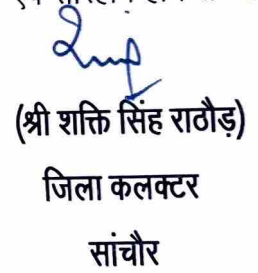 (श्री शक्ति सिंह राठौड़)
जिला कलक्टर
सांचौर